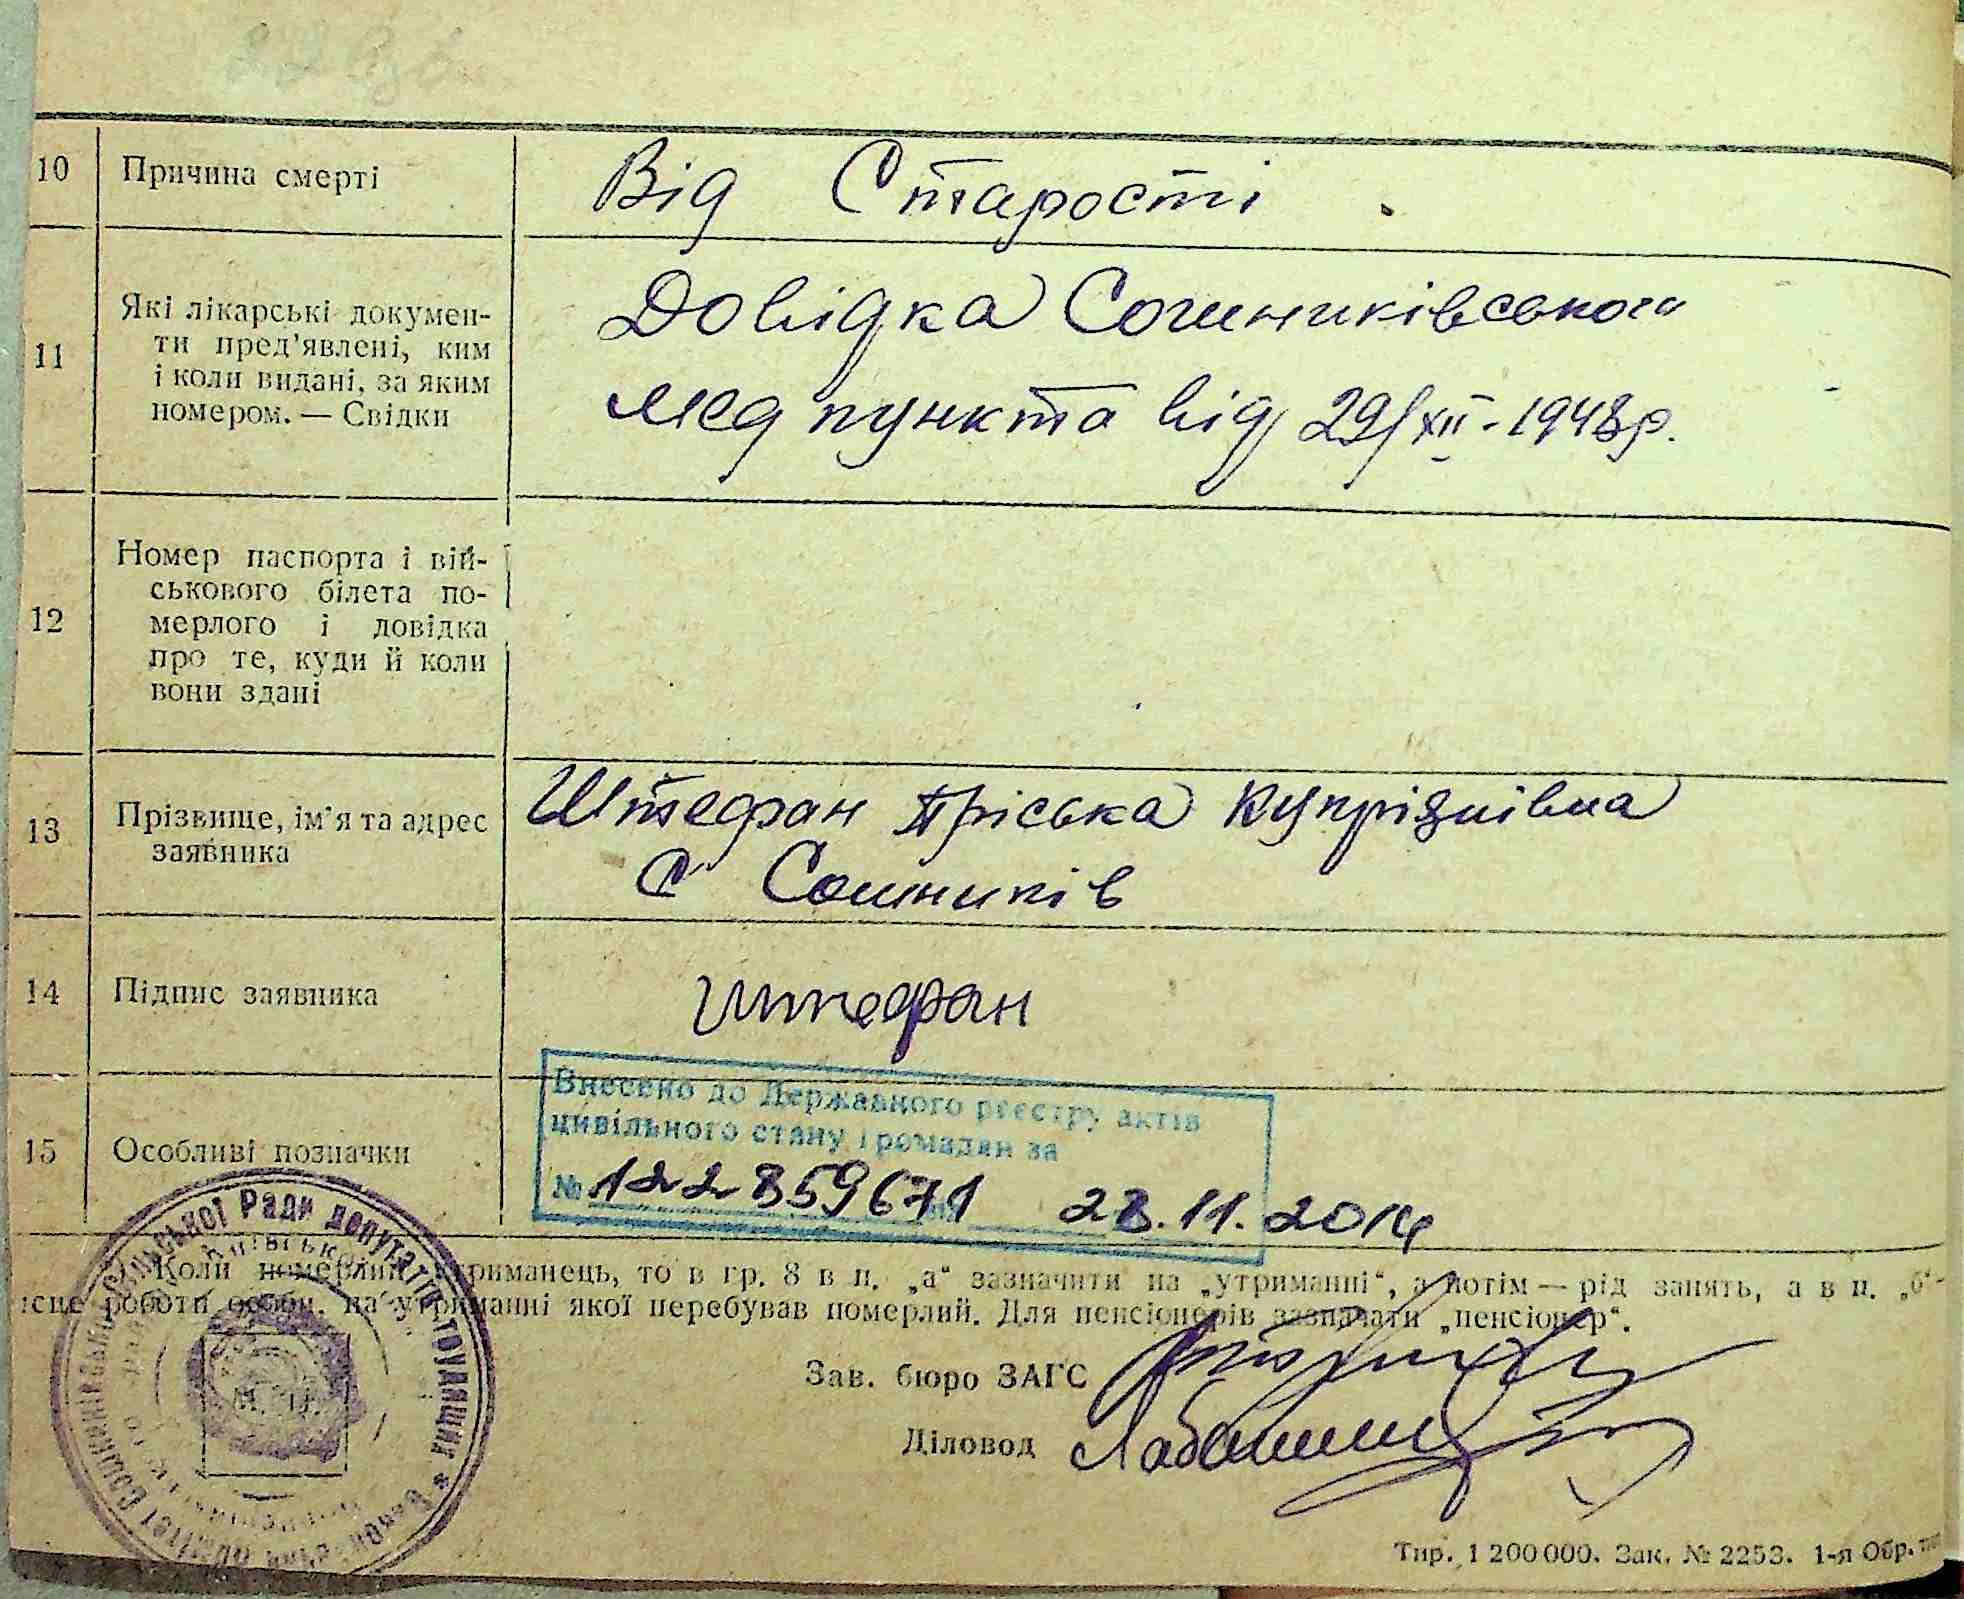 10 Причина смерті
Від Старості
11 Які лікарські докумен-
ти пред'явлені, ким
і коли видані, за яким
номером. — Свідки
Довідка Сошниківського
мед пункта від 29/XII - 1948р.
12 Номер паспорта і вій-
ськового білета по-
мерлого і довідка
про те, куди й коли
вони здані
13 Прізвище, ім'я та адрес
заявника
Штефан Пріська Купріянівна
С Сошників
14 Підпис заявника
Штефан
15 Особливі позначки
Внесено до Державного реєстру актів
цивільного стану громадян за
№ 122859671 28.11.2014
Коли померлий утриманець, то в гр. 8 в п. „а“ зазначити на „утриманні“, а потім — рід занять, а в п. „б“-
ісце роботи особи, на утриманні якої перебував померлий. Для пенсіонерів зазначати „пенсіонер“.
Зав. бюро ЗАГС
Діловод
сільської Ради депутатів трудящих
М. П.
Тир. 1 200 000. Зак. № 2253. 1-я Обр.